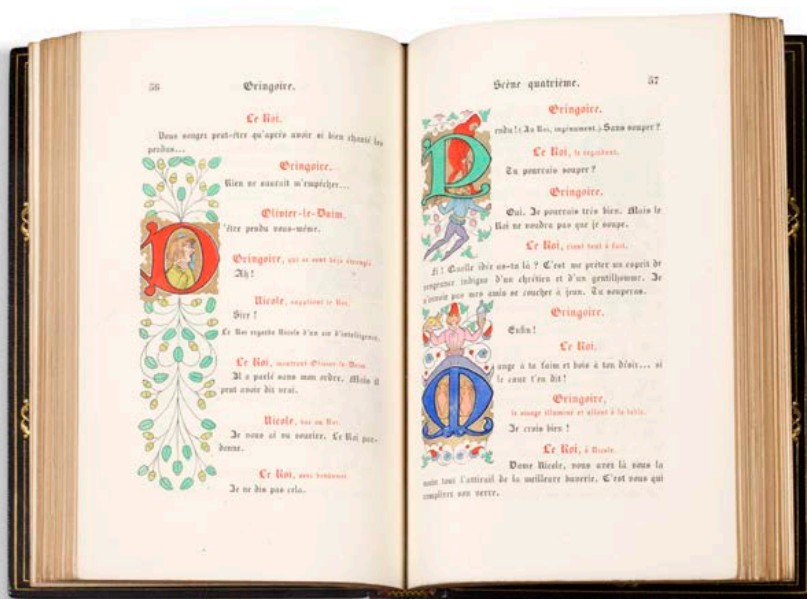 56
Gringoire.
Le Roi.
Vous songez peut-être qu'après avoir si bien chanté les
pendus...
Gringoire.
Rien ne saurait m'empêcher...
Olivier-le-Daim.
D'être pendu vous-même.
Gringoire, qui se sent déjà étranglé
Ah!
Nicole, suppliant le Roi.
Sire!
Le Roi regarde Nicole d'un air d'intelligence.
Le Roi, montrant Olivier-le-Daim
Il a parlé sans mon ordre. Mais il
peut avoir dit vrai.
Nicole, bas au Roi.
Je vous ai vu sourire. Le Roi par-
donne.
Le Roi, avec bonhomie
Je ne dis pas cela.
Scène quatrième.
57
Gringoire.
Pendu! (Au Roi, ingénument.) Sans souper?
Le Roi, le regardant.
Tu pourrais souper?
Gringoire.
Oui. Je pourrais très bien. Mais le
Roi ne voudra pas que je soupe.
Le Roi, riant tout à fait.
Fi! Quelle idée as-tu là? C'est me prêter un esprit de
vengeance indigne d'un chrétien et d'un gentilhomme. Je
n'envoie pas mes amis se coucher à jeun. Tu souperas.
Gringoire.
Enfin!
Le Roi.
Mange à ta faim et bois à ton désir... si
le cœur t'en dit!
Gringoire,
le visage illuminé et allant à la table.
Je crois bien!
Le Roi, à Nicole.
Dame Nicole, vous avez là sous la
main tout l'attirail de la meilleure buverie. C'est vous qui
remplirez son verre.